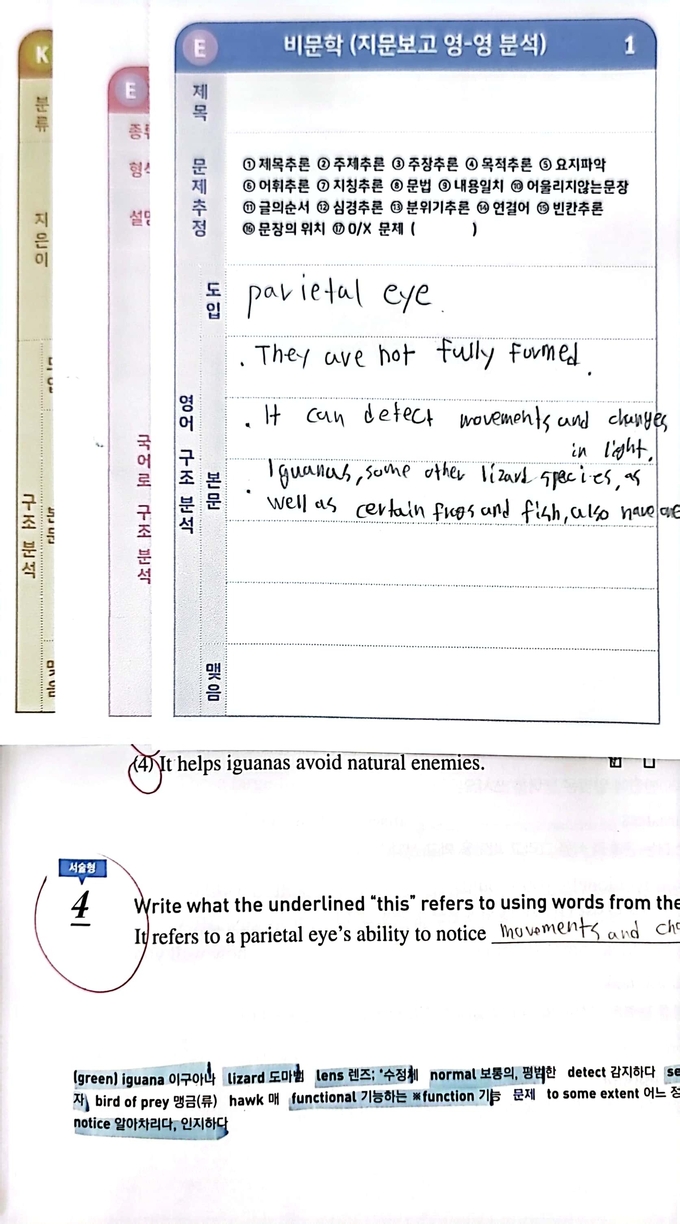 K
분류
지은이
도입
구조 분석
본문
맺음
E
종류
형식
설명
국어로 구조 분석
E 비문학 (지문보고 영-영 분석) 1
제목
문제추정
① 제목추론 ② 주제추론 ③ 주장추론 ④ 목적추론 ⑤ 요지파악
⑥ 어휘추론 ⑦ 지칭추론 ⑧ 문법 ⑨ 내용일치 ⑩ 어울리지않는문장
⑪ 글의순서 ⑫ 심경추론 ⑬ 분위기추론 ⑭ 연결어 ⑮ 빈칸추론
⑯ 문장의 위치 ⑰ O/X 문제 ( )
영어 구조 분석
도입
parietal eye.
본문
. They are not fully formed.
. It can detect movements and changes
in light.
. Iguanas, some other lizard species, as
well as certain frogs and fish, also have one
맺음
(4) It helps iguanas avoid natural enemies.
서술형
4
Write what the underlined “this” refers to using words from the
It refers to a parietal eye’s ability to notice movements and cha
(green) iguana 이구아나 lizard 도마뱀 lens 렌즈; *수정체 normal 보통의, 평범한 detect 감지하다 se
자 bird of prey 맹금(류) hawk 매 functional 기능하는 ※function 기능 문제 to some extent 어느 정
notice 알아차리다, 인지하다